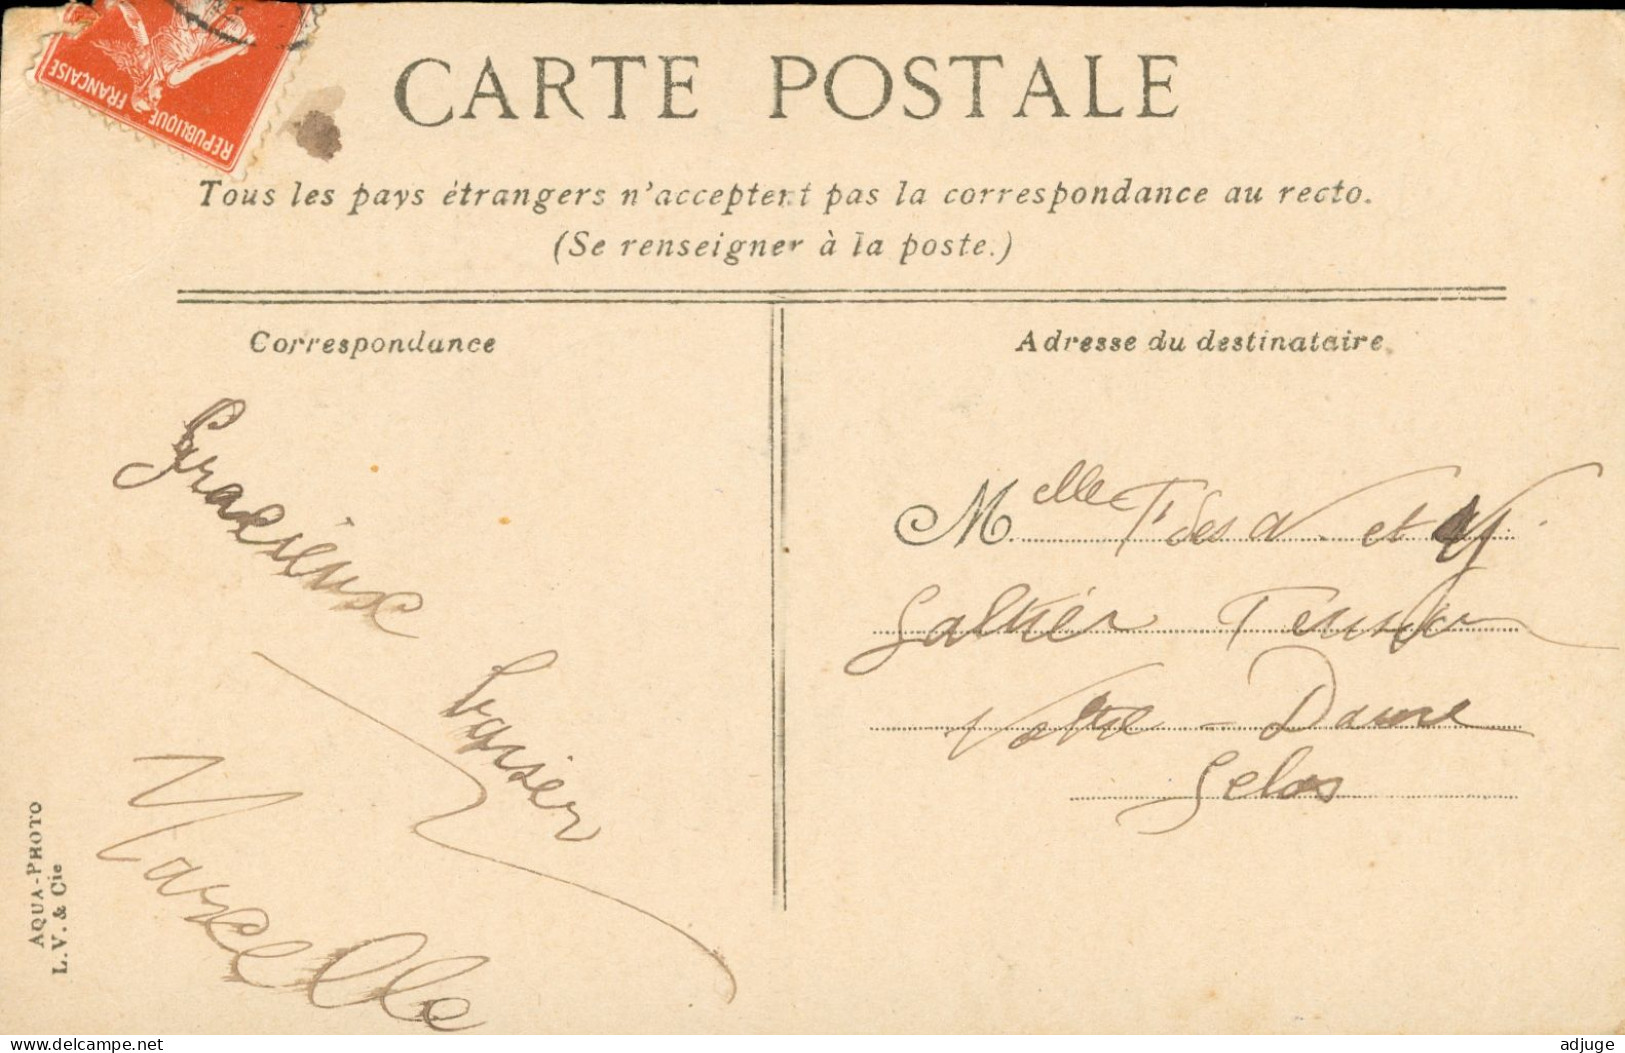 REPUBLIQUE FRANÇAISE
CARTE POSTALE
Tous les pays étrangers n'acceptent pas la correspondance au recto.
(Se renseigner à la poste.)
Correspondance
Gracieux
baiser
Marcelle
AQUA-PHOTO
L. V. & Cie
Adresse du destinataire
Melle et
Galtier
Notre-Dame
Gelos
delcampe.net
adjuge